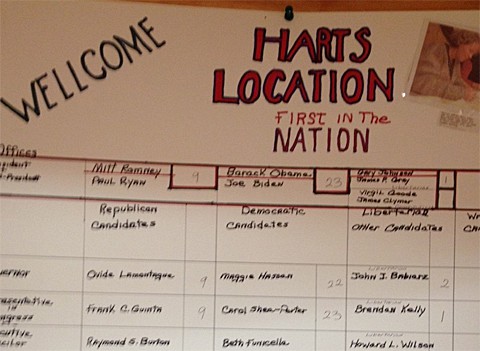 WELLCOME
HARTS
LOCATION
FIRST IN The
NATION
Offices
Mitt Romney 9 Barack Obama 23 Gary Johnson 1
Paul Ryan Joe Biden James P. Gray
Virgil Goode
James Clymer
Republican Democratic Libertarian
Candidates Candidates Other Candidates
Ovide Lamontagne 9 Maggie Hassan 22 John J. Babiarz 2
Frank C. Guinta 9 Carol Shea-Porter 23 Brendan Kelly 1
Raymond S. Burton Beth Funicella Howard L. Wilson